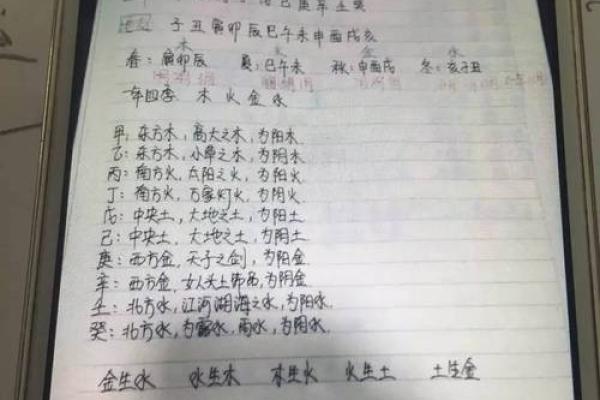 己庚辛壬癸
地支 子丑寅卯辰巳午未申酉戌亥
木 火 金 水
春：寅卯辰 夏：巳午未 秋：申酉戌 冬：亥子丑
一年四季 木火金水
甲：东方木，高大之木，为阳木.
乙：东方木，小草之木，为阴木.
丙：南方火，太阳之火，为阳火.
丁：南方火，万家灯火，为阴火.
戊：中央土，大地之土，为阳土.
己：中央土，大地之土，为阴土.
庚：西方金，天子之剑，为阳金.
辛：西方金，女人头上饰品，为阴金.
壬：北方水，江河湖海之水，为阳水.
癸：北方水，为露水，雨水，为阴水.
金生水 水生木 木生火 火生土 土生金